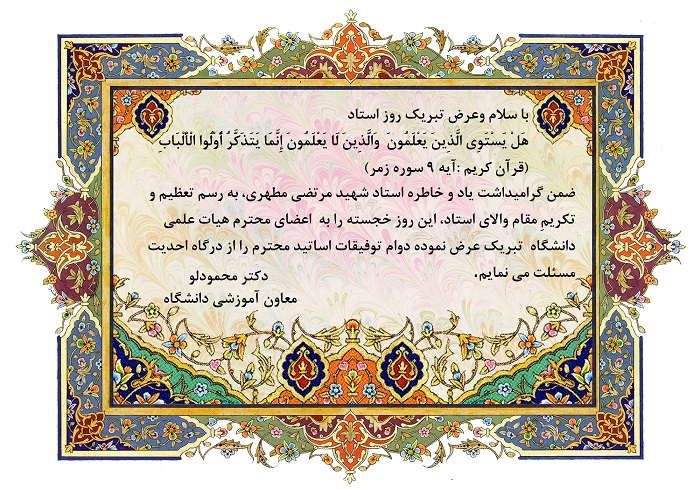 با سلام وعرض تبریک روز استاد
هَلْ یَسْتَوِی الَّذِینَ یَعْلَمُونَ وَالَّذِینَ لَا یَعْلَمُونَ إِنَّمَا یَتَذَکَّرُ أُوْلُوا الْأَلْبَابِ
(قرآن کریم :آیه ۹ سوره زمر)
ضمن گرامیداشت یاد و خاطره استاد شهید مرتضی مطهری، به رسم تعظیم و
تکریمِ مقام والای استاد، این روز خجسته را به اعضای محترم هیات علمی
دانشگاه تبریک عرض نموده دوام توفیقات اساتید محترم را از درگاه احدیت
مسئلت می نمایم.
دکتر محمودلو
معاون آموزشی دانشگاه